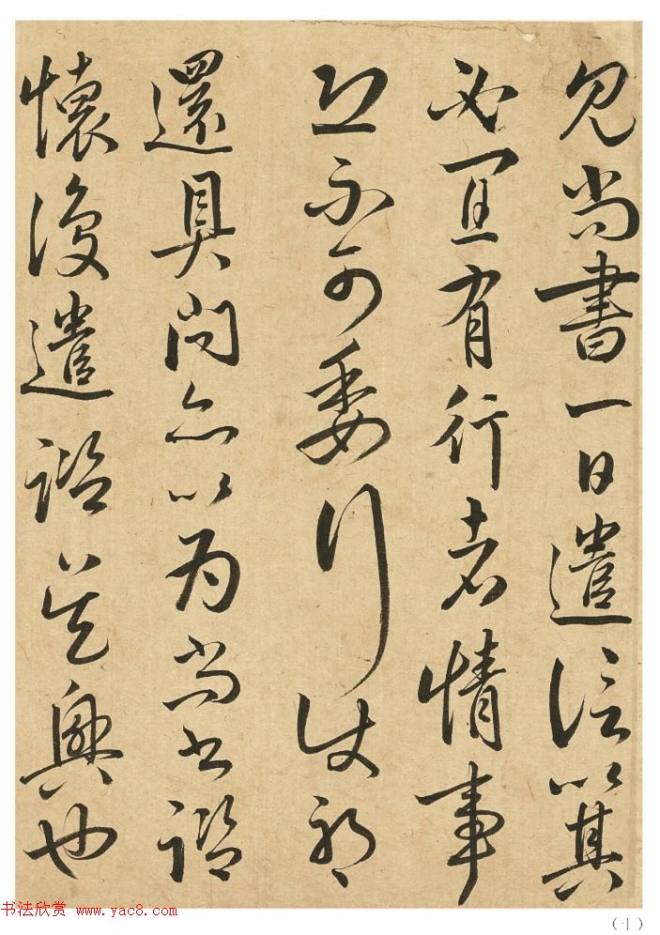 見尚書一日遣信以其
必宜有行者情事
不可委行使
還具問亦以為尚書諮
懷復遣諮興也
书法欣赏 www.yac8.com
(十)